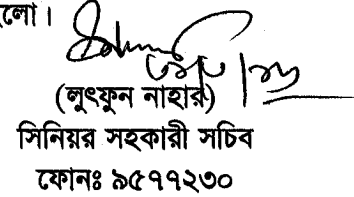 লো।
(লুৎফুন নাহার)
সিনিয়র সহকারী সচিব
ফোনঃ ৯৫৭৭২৩০